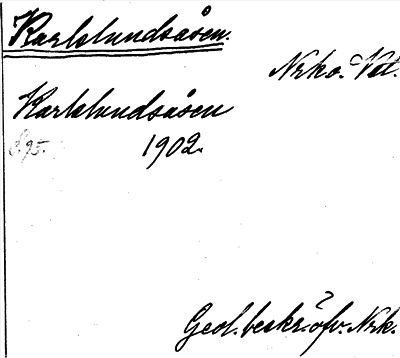 Karlslundsåsen.
Nrke. Vet.
Karlslundsåsen
S. 95. 1902.
Geol. beskr. öfv. Nrk.